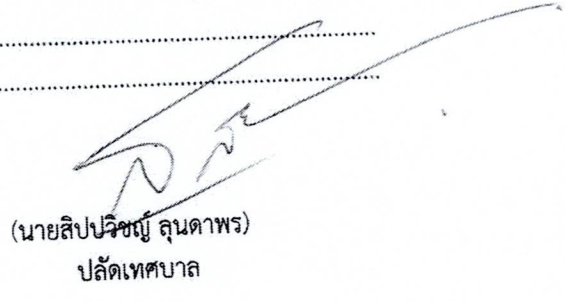 (นายสิปปวิชญ์ ลุนดาพร)
ปลัดเทศบาล